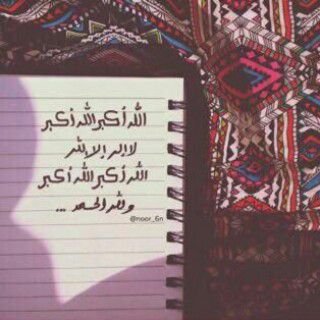 الله أكبر الله أكبر
لا إله إلا الله
الله أكبر الله أكبر
ولله الحمد ...
@noor_6n